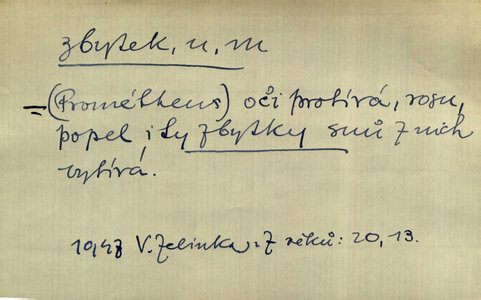 zbytek, u, m
= (Prométheus) oči protírá, rosu,
popel, i ty zbytky snů z nich
vytírá.
1947 V. Zelinka: Z věků: 20, 13.